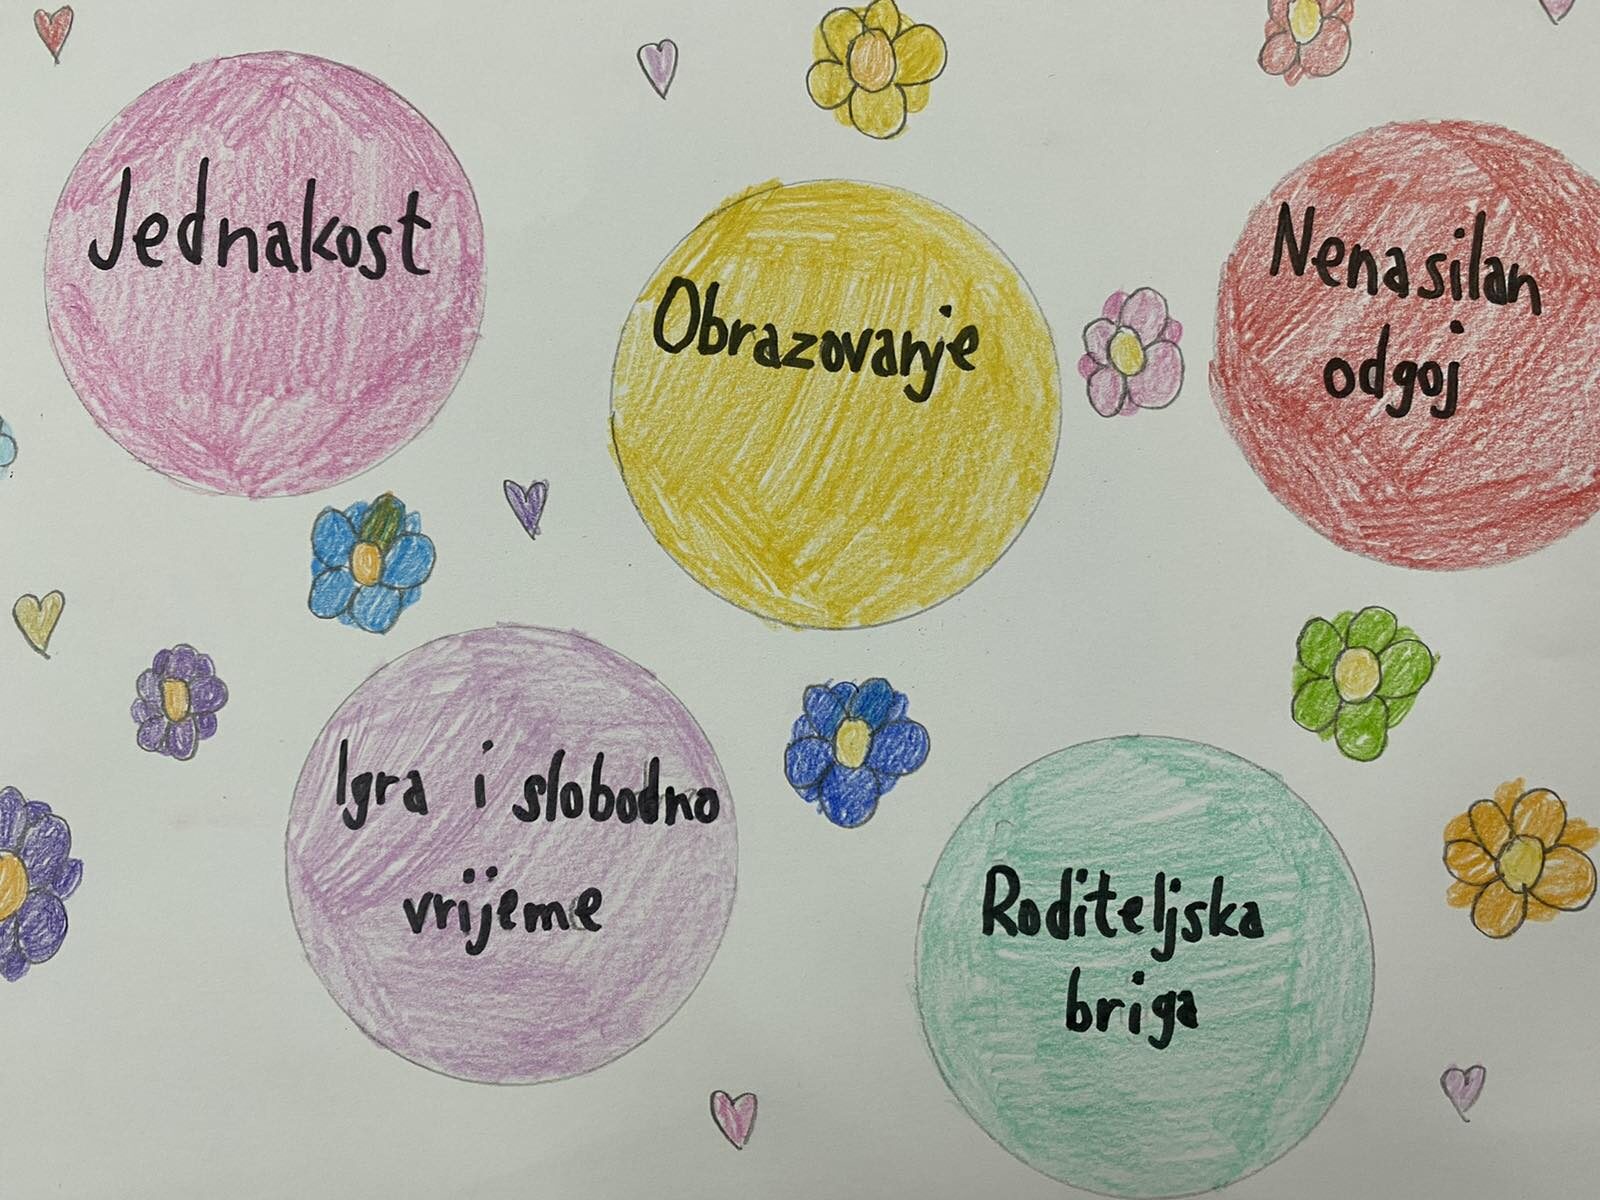 Jednakost
Obrazovanje
Nenasilan
odgoj
Igra i slobodno
vrijeme
Roditeljska
briga